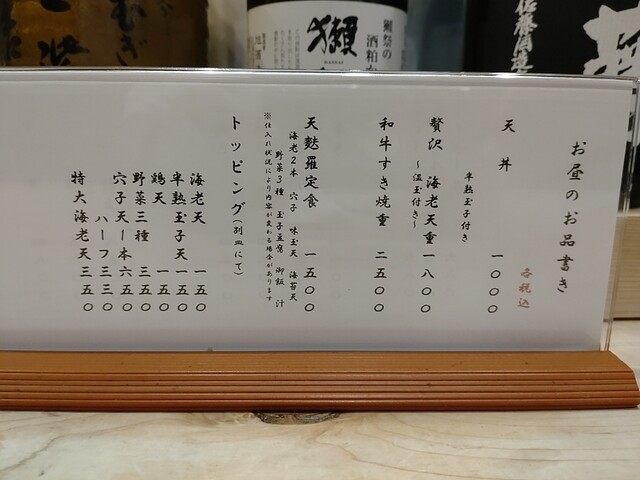 お昼のお品書き
各税込
天丼 一〇〇〇
半熟玉子付き
贅沢 海老天重 一八〇〇
~温玉付き~
和牛すき焼重 二五〇〇
天麩羅定食 一五〇〇
海老2本 穴子 味玉天 海苔天
野菜3種 玉子豆腐 御飯 汁
※仕入れ状況により内容が変わる場合があります
トッピング(別皿にて)
海老天 一五〇
半熟玉子天 一五〇
鶏天 一五〇
野菜三種 三五〇
穴子天一本 六五〇
ハーフ 三三〇
特大海老天 三五〇
獺
獺祭の
酒粕か
佐藤酒造
むぎ